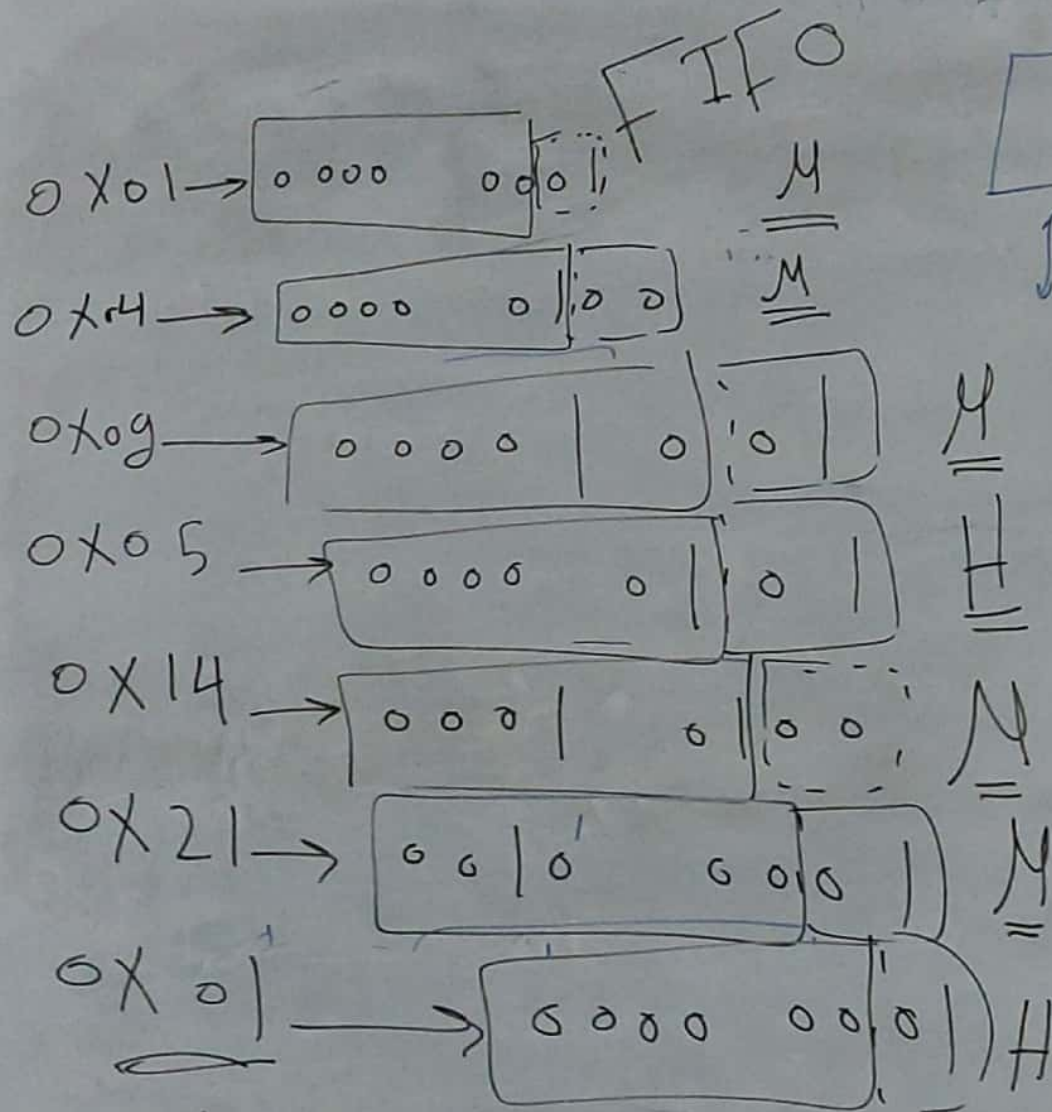 FIFO
0x01 → 0000 0001 M
0x04 → 0000 0100 M
0x09 → 0000 1001 M
0x05 → 0000 0101 H
0x14 → 0001 0100 M
0x21 → 0010 0001 M
0x01 → 0000 0001 H